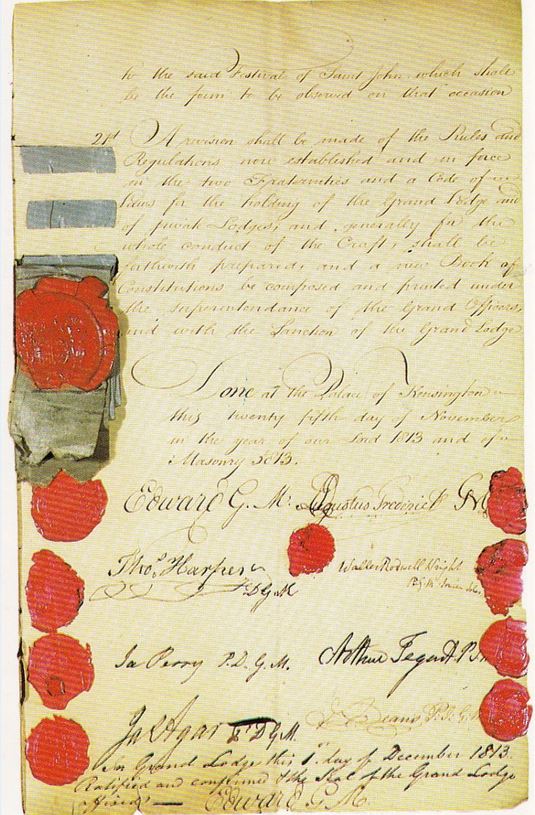 to the said Festival of Saint John, which shall
be the form to be observed on that occasion
21st A revision shall be made of the Rules and
Regulations now established and in force
in the two Fraternities and a Code of
Laws for the holding of the Grand Lodge and
of private Lodges, and generally for the
whole conduct of the Craft, shall be
forthwith prepared, and a new Book of
Constitutions be composed and printed under
the superintendance of the Grand Officers,
and with the Sanction of the Grand Lodge
Done at the Palace of Kensington
this twenty fifth day of November
in the year of our Lord 1813 and of
Masonry 5813.
Edward G. M. Augustus Frederick G M
Thos. Harper Waller Rodwell Wright
D G M P.G.M.
Ja Perry P. D. G. M. Arthur Tegart P.
Jas Agar D G M J. Deans, P. J. G.
In Grand Lodge this 1st day of December 1813.
Ratified and confirmed & the Seal of the Grand Lodge
Affixed — Edward G. M.